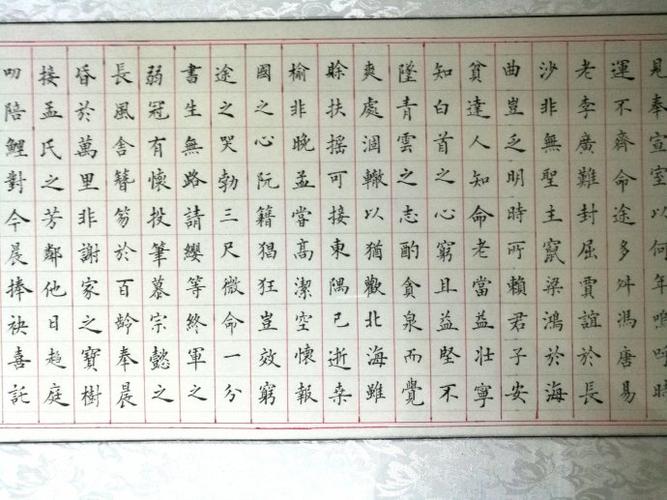 見奉宣室以何年嗚呼時
運不齊命途多舛馮唐易
老李廣難封屈賈誼於長
沙非無聖主竄梁鴻於海
曲豈乏明時所賴君子安
貧達人知命老當益壯寧
知白首之心窮且益堅不
墜青雲之志酌貪泉而覺
爽處涸轍以猶歡北海雖
賒扶搖可接東隅已逝桑
榆非晚孟嘗高潔空懷報
國之心阮籍猖狂豈效窮
途之哭勃三尺微命一分
書生無路請纓等終軍之
弱冠有懷投筆慕宗愨之
長風舍簪笏於百齡奉晨
昏於萬里非謝家之寶樹
接孟氏之芳鄰他日趨庭
叨陪鯉對今晨捧袂喜託